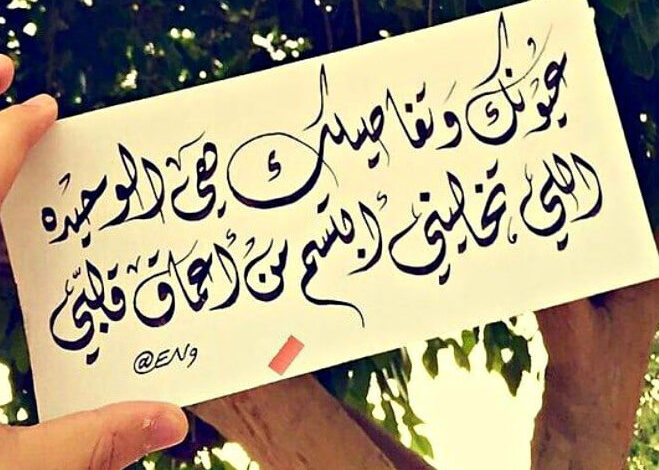 عيونك وتفاصيلك هي الوحيده
اللي تخليني أبتسم من أعماق قلبي
@ENو